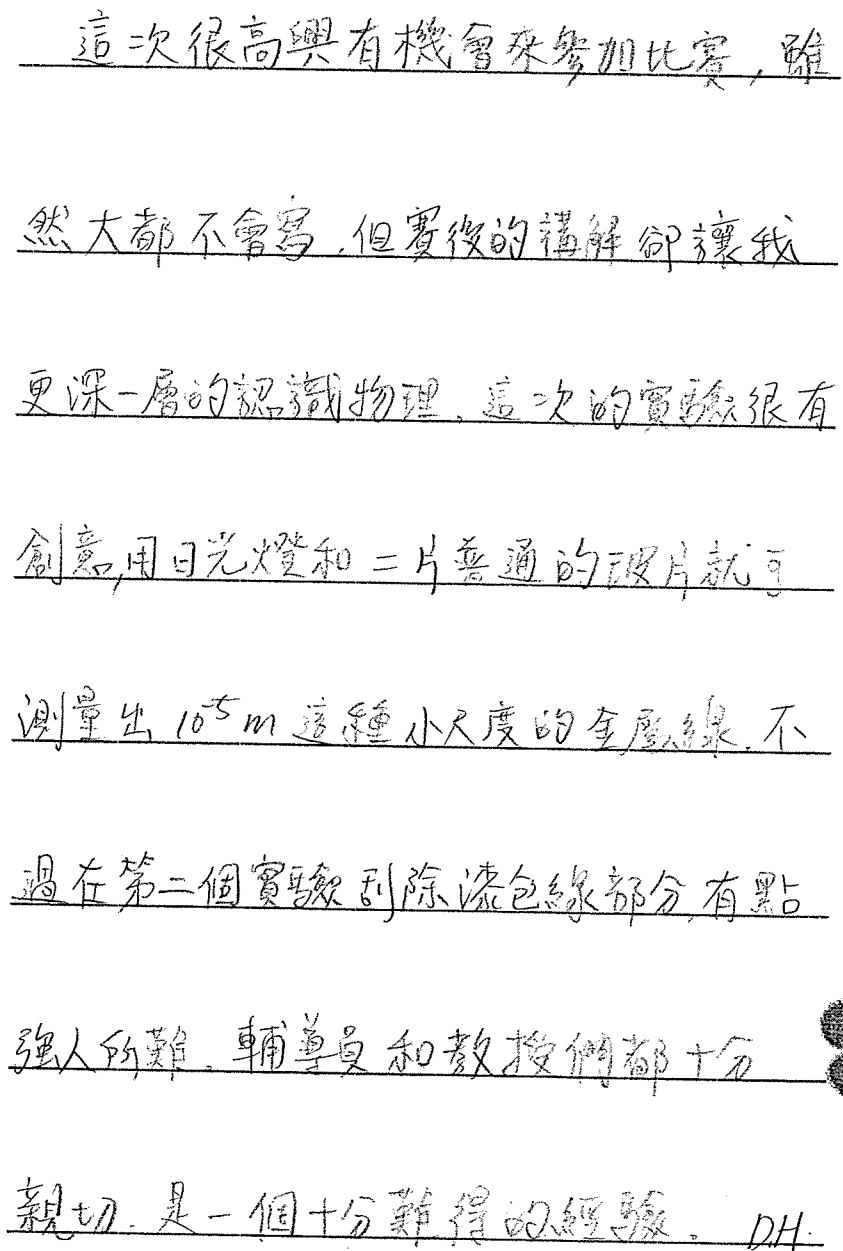 這次很高興有機會來參加比賽,雖
然大都不會寫,但賽後的講解卻讓我
更深一層的認識物理。這次的實驗很有
創意,用日光燈和二片普通的玻片就可
測量出10⁻⁵m這種小尺度的金屬線.不
過在第二個實驗刮除漆包線部分,有點
強人所難。輔導員和教授們都十分
親切.是一個十分難得的經驗。 D.H.